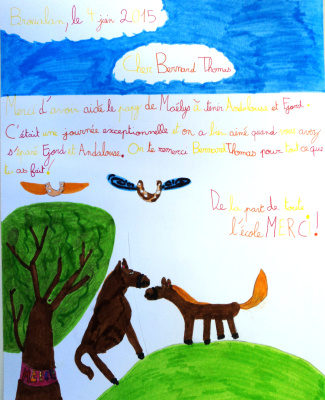 Brouchen, le 4 juin 2015
Cher Bernard Thomas
Merci d'avoir aidé le papy de Maëlys à tenir Andalouse et Fjord.
C'était une journée exceptionnelle et on a bien aimé quand vous avez
Fjord et Andalouse. On te remerci Bernard Thomas pour tout ce que
tu as fait!
De la part de toute
l'école MERCI!